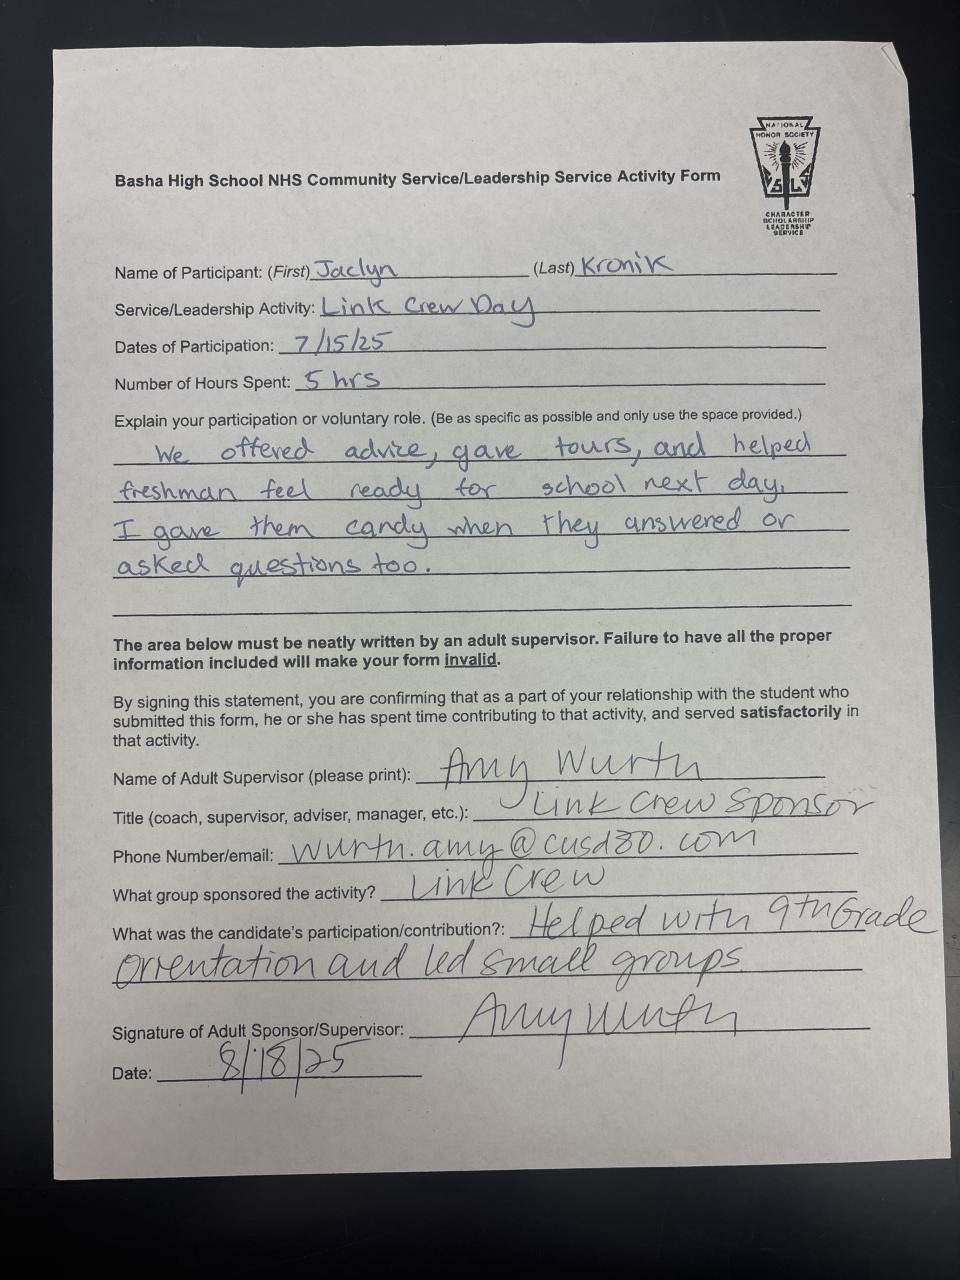 NATIONAL
HONOR SOCIETY
S L S
CHARACTER
SCHOLARSHIP
LEADERSHIP
SERVICE
Basha High School NHS Community Service/Leadership Service Activity Form
Name of Participant: (First) Jaclyn (Last) Kronik
Service/Leadership Activity: Link Crew Day
Dates of Participation: 7/15/25
Number of Hours Spent: 5 hrs
Explain your participation or voluntary role. (Be as specific as possible and only use the space provided.)
We offered advice, gave tours, and helped
freshman feel ready for school next day.
I gave them candy when they answered or
asked questions too.
The area below must be neatly written by an adult supervisor. Failure to have all the proper
information included will make your form invalid.
By signing this statement, you are confirming that as a part of your relationship with the student who
submitted this form, he or she has spent time contributing to that activity, and served satisfactorily in
that activity.
Name of Adult Supervisor (please print): Amy Wurth
Title (coach, supervisor, adviser, manager, etc.): Link Crew Sponsor
Phone Number/email: wurth.amy@cusd80.com
What group sponsored the activity? Link Crew
What was the candidate's participation/contribution?: Helped with 9th Grade
Orientation and led small groups
Signature of Adult Sponsor/Supervisor: Amy Wurth
Date: 8/18/25